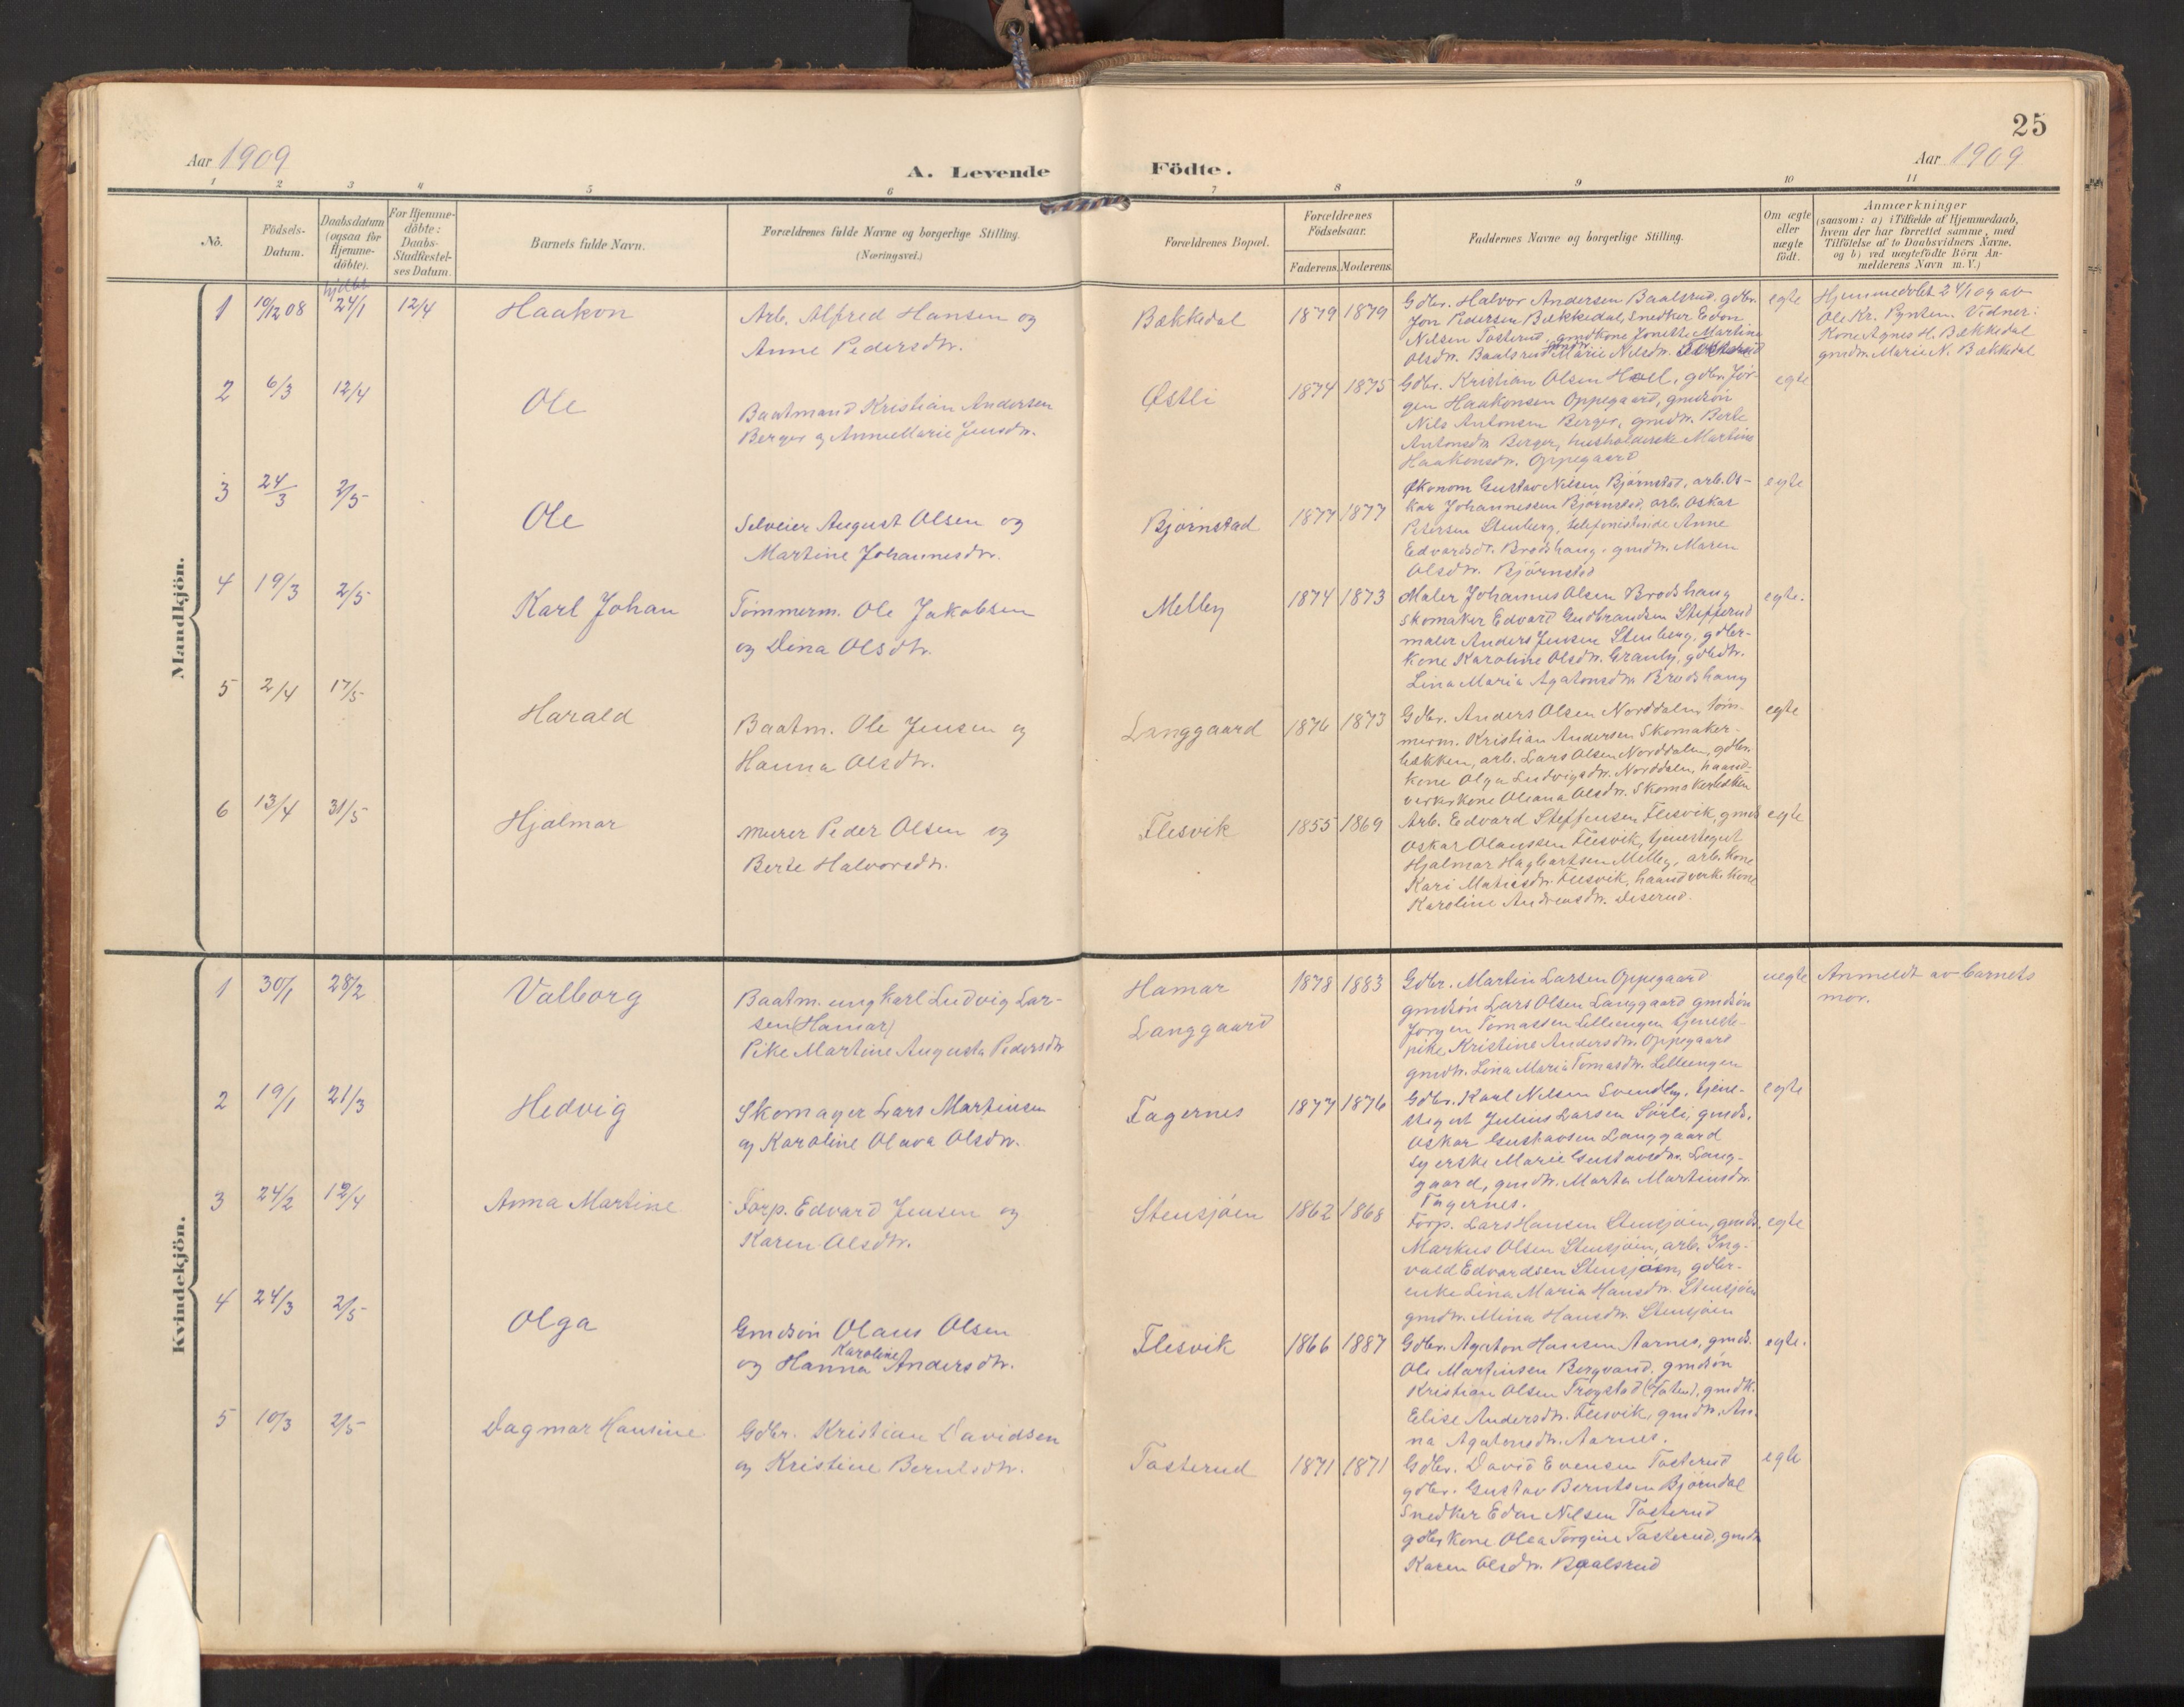 25
Aar 1909
A. Levende Födte.
Aar 1909
1 2 3 4 5 6 7 8 9 10 11
No.
Födsels-Datum.
Daabsdatum (ogsaa for Hjemme-döbte).
For Hjemme-döbte: Daabs-Stadfæstel-ses Datum.
Barnets fulde Navn.
Forældrenes fulde Navne og borgerlige Stilling.
(Næringsvei.)
Forældrenes Bopæl.
Forældrenes Födselsaar.
Faderens. Moderens.
Faddernes Navne og borgerlige Stilling.
Om ægte eller uægte födt.
Anmærkninger
(saasom: a) i Tilfælde af Hjemmedaab,
hvem der har forrettet samme, med
Tilföielse af to Daabsvidners Navne.
og b) ved uægtefödte Börn An-
melderens Navn m. V.)
Mandkjön.
1 10/12 08 hjdbt 24/1 12/4 Haakon
Arb. Alfred Hansen og
Anne Pedersdtr.
Bækkedal 1879 1879
Gdbr. Halvor Andersen Baalsrud, gdbr.
Jon Pedersen Bækkedal, Snedker Edon
Nilsen Tosterud, gmdkone Jonette Martine
Olsdtr. Baalsrud gmdtr. Marie Nilsdtr.
egte
Hjemmedøbt 24/1 09 av
Ole Kr. Pynten. Vidner:
Kone Agnes H. Bækkedal
gmdtr. Marie N. Bækkedal
2 6/3 12/4 Ole
Baatmand Kristian Andersen
Berger og Anne Marie Jensdtr.
Østli 1874 1875
Gdbr. Kristian Olsen Hoel, gdbr. Jør-
gen Haakonsen Oppegaard, gmdsön
Nils Antonsen Berger, gmdtr. Berte
Antonsdtr. Berger, husholderske Martine
Haakonsdtr. Oppegaard
egte
3 24/3 2/5 Ole
Selveier August Olsen og
Martine Johannesdtr.
Bjørnstad 1877 1877
Økonom Gustav Nilsen Bjørnstad, arb. Os-
kar Johannessen Bjørnstad, arb. Oskar
Petersen Stenberg, telefonistinde Anne
Edvardsdr. Brodshaug, gmdtr. Maren
Olsdtr. Bjørnstad
egte
4 19/3 2/5 Karl Johan
Tømmerm. Ole Jakobsen
og Dina Olsdtr.
Melby 1874 1873
Maler Johannes Olsen Brodshaug
skomaker Edvard Gudbrandsen Stefferud
maler Anders Jensen Stenberg, gdbr-
kone Karoline Olsdtr. Granly, gdbdtr.
Lina Maria Agatonsdtr. Brodshaug
egte.
5 2/4 17/5 Harald
Baatm. Ole Jensen og
Hanna Olsdtr.
Langgaard 1876 1873
Gdbr. Anders Olsen Norddalen, töm-
merm. Kristian Andersen Skomaker-
bækken, arb. Lars Olsen Norddalen, gdbr.
kone Olga Ludvigsdtr. Norddalen, haand-
verkskone Oleana Olsdtr. Skomakerbækken
egte
6 13/4 31/5 Hjalmar
Murer Peder Olsen og
Berte Halvorsdtr.
Flesvik 1855 1869
Arb. Edvard Steffensen Flesvik, gmds
Oskar Olaussen Flesvik, tjenestegut
Hjalmar Hagbartsen Melby, arb. kone
Kari Matisdtr. Flesvik, haandverk. kone
Karoline Andreasdtr. Diserud.
egte
Kvindekjön.
1 30/1 28/2 Valborg
Baatm. ung Karl Ludvig Lar-
sen (Hamar)
Pike Martine Augusta Pedersdtr
Hamar
Langgaard
1878 1883
Gdbr. Martin Larsen Oppegaard
gmdsön Lars Olsen Langgaard gmdsön
Jörgen Tomassen Lilleengen tjeneste-
pike Kristine Andersdtr. Oppegaard
gmdtr. Lina Maria Tomasdtr. Lilleengen
uegte
Anmeldt av barnets
mor.
2 19/1 21/3 Hedvig
Skomager Lars Martinsen
og Karoline Olava Olsdtr.
Fagernes 1877 1876
Gdbr. Karl Nilsen Svendby, tjene-
stegut Julius Larsen Sörli, gmds.
Oskar Gustavsen Langgaard
syerske Marie Gustavsdtr. Lang-
gaard, gmdtr. Marta Martinsdtr.
Fagernes.
egte
3 24/2 12/4 Anna Martine
Forp. Edvard Jensen og
Karen Olsdtr.
Stensjöen 1862 1868
Forp. Lars Hansen Stensjöen, gmds.
Markus Olsen Stensjöen, arb. Ing-
vald Edvardsen Stensjöen, gdbr-
enke Lina Maria Hansdtr. Stensjöen
gmdtr. Mina Hansdtr. Stensjöen
egte
4 24/3 2/5 Olga
Gmdsön Olaus Olsen
og Hanna Karoline Andersdtr.
Flesvik 1866 1887
Gdbr. Agaton Hansen Aarnes, gmds.
Ole Martinsen Bergvand, gmdsön
Kristian Olsen Trogstad (Toten), gmdk.
Elise Andersdtr. Flesvik, gmdtr. An-
na Agatonsdtr. Aarnes.
egte.
5 10/3 2/5 Dagmar Hansine
Gdbr. Kristian Davidsen
og Kristine Berntsdtr.
Tosterud 1871 1871
Gdbr. David Evensen Tosterud
gdbr. Gustav Berntsen Bjørndal
Snedker Edon Nilsen Tosterud
gdbr kone Olea Torgine Tosterud, gmdtr
Karen Olsdtr. Baalsrud
egte